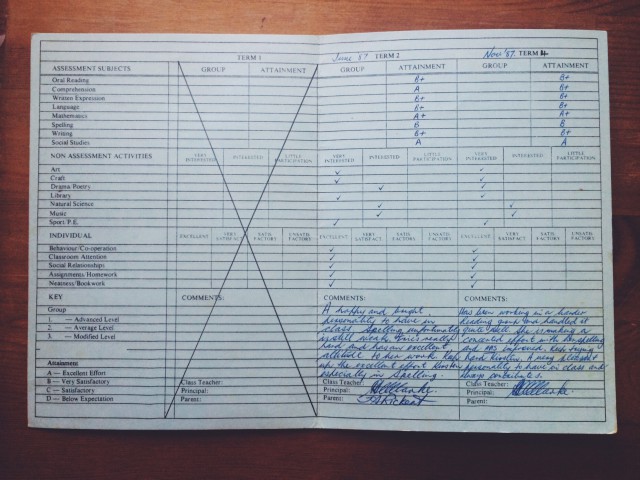 TERM 1 June '87 TERM 2 Nov '87. TERM 4
ASSESSMENT SUBJECTS GROUP ATTAINMENT GROUP ATTAINMENT GROUP ATTAINMENT
Oral Reading B+ B+
Comprehension A B+
Written Expression B+ B+
Language B+ B+
Mathematics A+ A+
Spelling B B
Writing B+ B+
Social Studies A A
NON ASSESSMENT ACTIVITIES VERY INTERESTED INTERESTED LITTLE PARTICIPATION VERY INTERESTED INTERESTED LITTLE PARTICIPATION VERY INTERESTED INTERESTED LITTLE PARTICIPATION
Art ✓ ✓
Craft ✓ ✓
Drama/Poetry ✓ ✓
Library ✓ ✓
Natural Science ✓ ✓
Music ✓ ✓
Sport/P.E. ✓ ✓
INDIVIDUAL EXCELLENT VERY SATISFACT. SATIS. FACTORY UNSATIS. FACTORY EXCELLENT VERY SATISFACT. SATIS. FACTORY UNSATIS. FACTORY EXCELLENT VERY SATISFACT. SATIS. FACTORY UNSATIS. FACTORY
Behaviour/Co-operation ✓ ✓
Classroom Attention ✓ ✓
Social Relationships ✓ ✓
Assignments/Homework ✓ ✓
Neatness/Bookwork ✓ ✓
KEY COMMENTS: COMMENTS: COMMENTS:
Group
1. — Advanced Level
2. — Average Level
3. — Modified Level
Attainment
A — Excellent Effort
B — Very Satisfactory
C — Satisfactory
D — Below Expectation
Class Teacher:
Principal:
Parent:
A happy and bright
personality to have in
class. Spelling unfortunately
is still weak. tries really
hard and has an excellent
attitude to her work. Keep
up the excellent effort Kirsten
especially in Spelling.
Class Teacher:
Principal:
Parent:
Has been working in a harder
reading group and handled it
quite well. She is making a
concerted effort with her spelling
and has improved. Keep trying
hard Kirsten. A very delightful
personality to have in class and
always contributes.
Class Teacher:
Principal:
Parent: